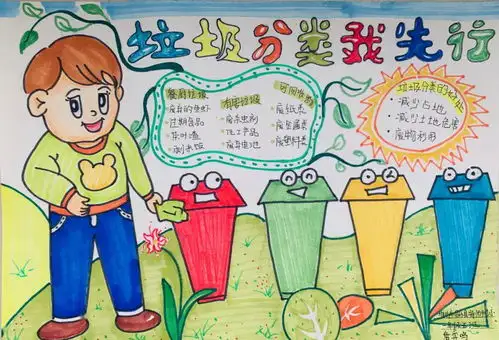 垃圾分类我先行
餐厨垃圾
过期食品
茶叶渣
剩米饭
有害垃圾
废杀虫剂
化工产品
废弃电池
可回收物
废纸类
废金属类
废塑料类
垃圾分类的好处
减少占地
减少土地危害
废物利用